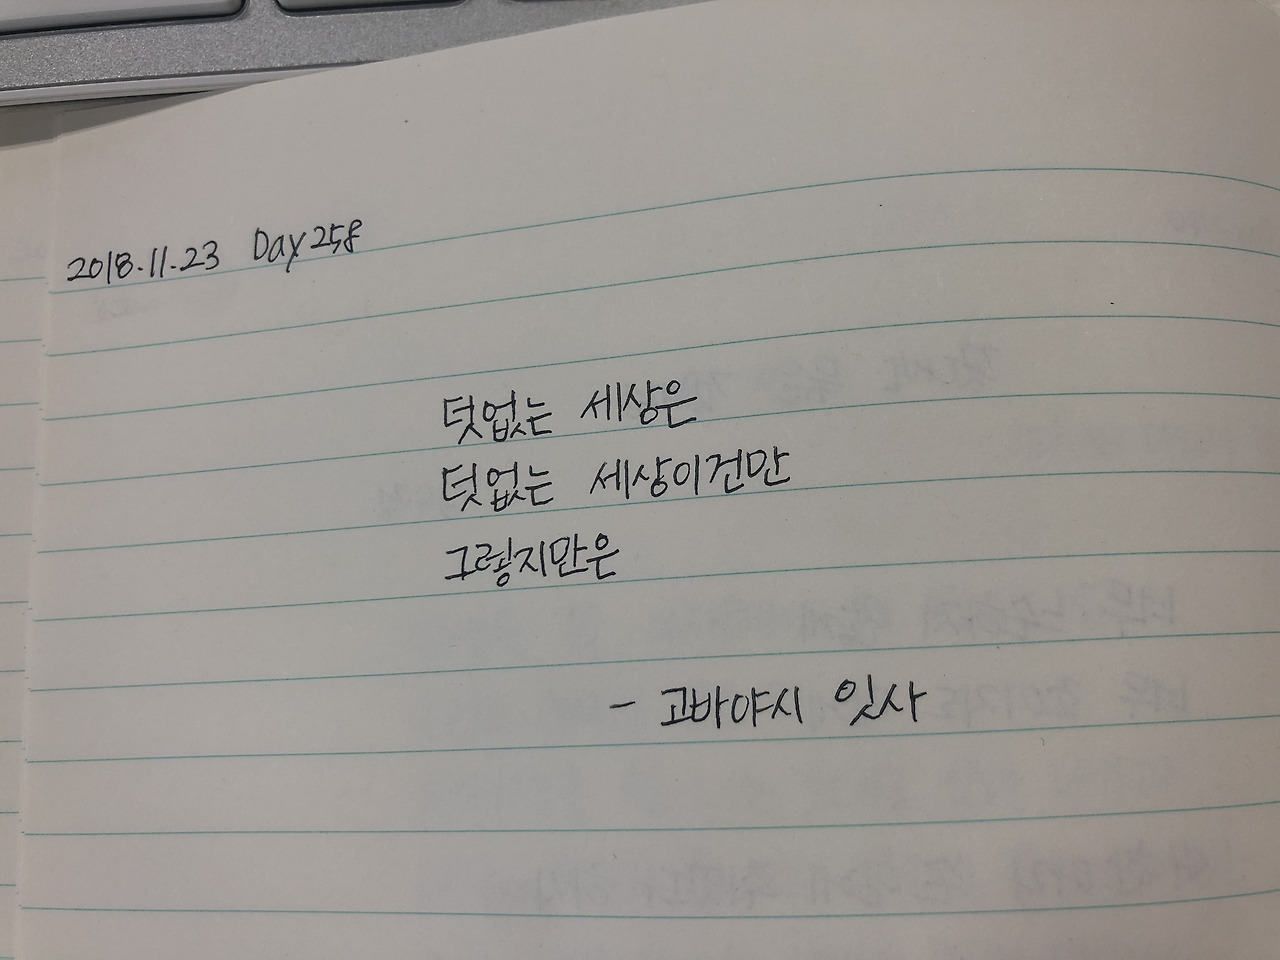 2018.11.23 Day258
덧없는 세상은
덧없는 세상이건만
그렇지만은
- 고바야시 잇사